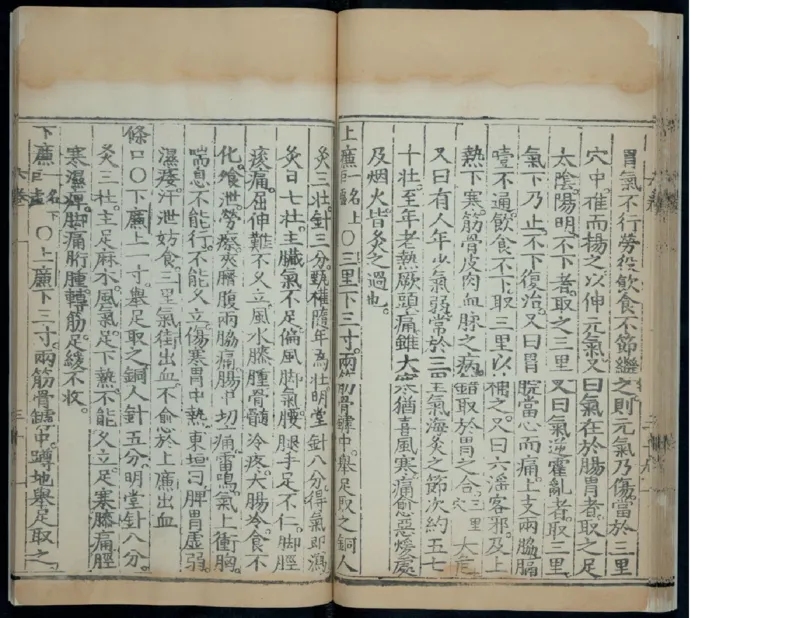 胃氣不行勞役飲食不節繼之則元氣乃傷當於三里
穴中推而揚之以伸元氣又曰氣在於腸胃者取之足
太陰陽明不下者取之三里又曰氣逆霍亂者取三里
氣下乃止不下復治又曰胃脘當心而痛上支兩脇膈
噎不通飲食不下取三里以補之又曰六淫客邪及上
熱下寒筋骨皮肉血脉之病錯取於胃之合三里穴大危
又曰有人年少氣弱常於三里氣海灸之節次約五七
十壯至年老熱厥頭痛雖大寒猶喜風寒痛愈惡煖處
及烟火皆灸之過也
上廉一名上巨虛〇三里下三寸兩筋骨罅中舉足取之銅人
灸三壯針三分甄權隨年為壯明堂針八分得氣即瀉
灸日七壯主臟氣不足偏風脚氣腰腿手足不仁脚脛
痠痛屈伸難不久立風水膝腫骨髓冷疼大腸冷食不
化飧泄勞瘵夾臍腹兩脇痛腸中切痛雷鳴氣上衝胸
喘息不能行不能久立傷寒胃中熱東垣曰脾胃虛弱
濕痿汗泄妨食三里氣街出血不愈於上廉出血
條口〇下廉上一寸舉足取之銅人針五分明堂針八分
灸三壯主足麻木風氣足下熱不能久立足寒膝痛脛
寒濕痺脚痛胻腫轉筋足緩不收
下廉一名下巨虛〇上廉下三寸兩筋骨罅中蹲地舉足取之
六卷
三十